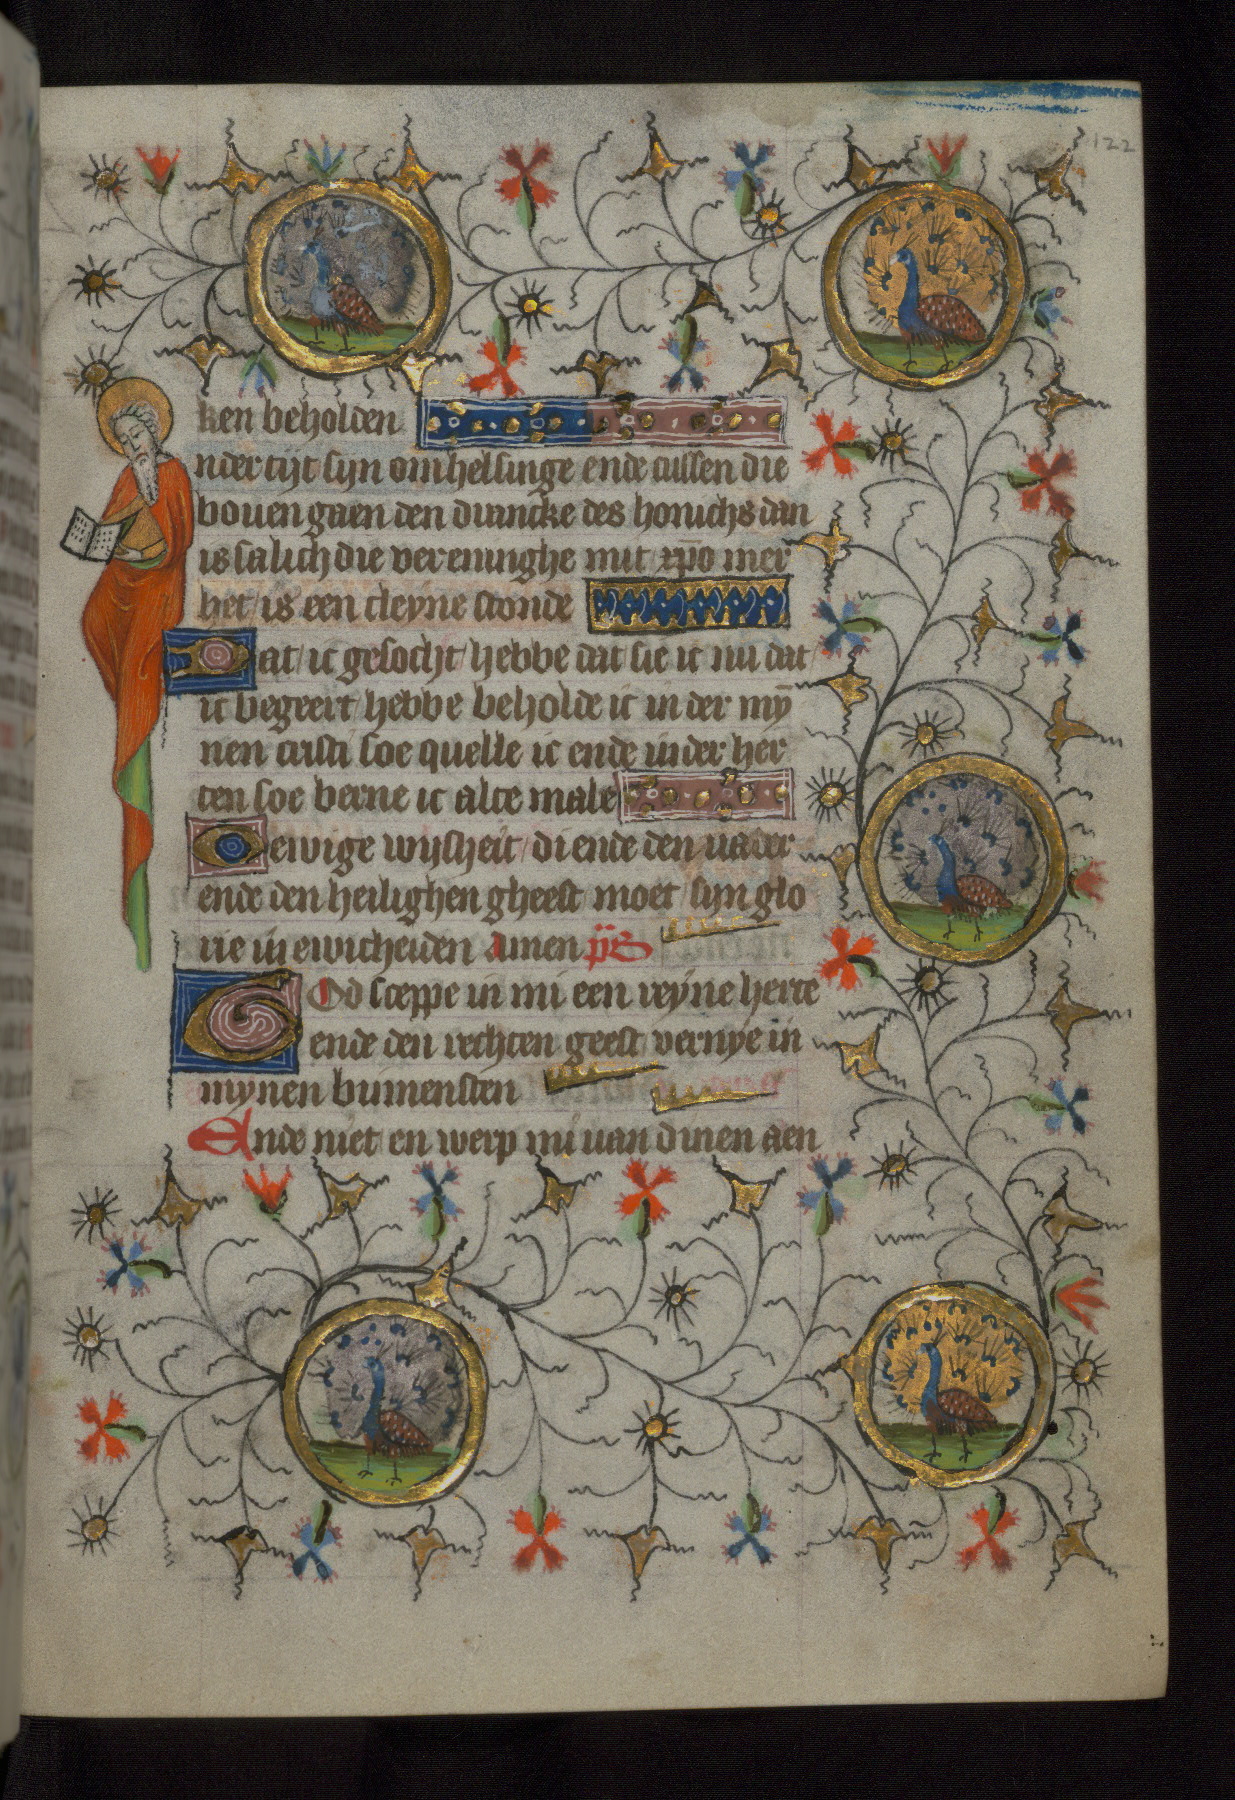 122
ken beholden
nder tijt sijn omhelsinge ende cussen die
bouen gaen den drancke des honichs dan
is salich die vereninghe mit xp̄o mer
het is een cleyne stonde
Dat ic gesocht hebbe dat sie ic nu dat
ic begeert hebbe beholde ic in der mȳ
nen cristi soe quelle ic ende in der her
ten soe berne ic alte male
O ewige wijsheit di ende den uader
ende den heilighen gheest moet sijn glo
rie in ewicheiden Amen p̄s
God sceppe in mi een reyne herte
ende den rechten geest vernye in
mynen binnensten
Ende niet en werp mi uan dinen aen